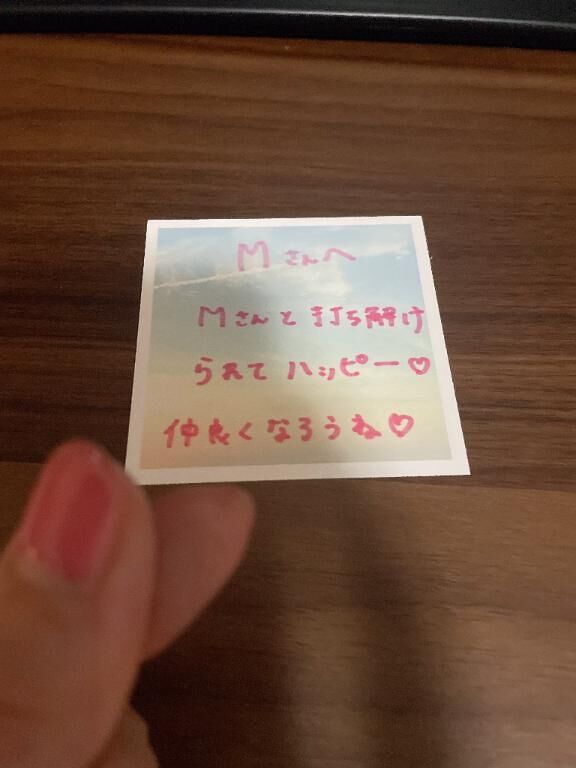 Mさんへ
Mさんと打ち解け
られてハッピー♡
仲良くなろうね♡